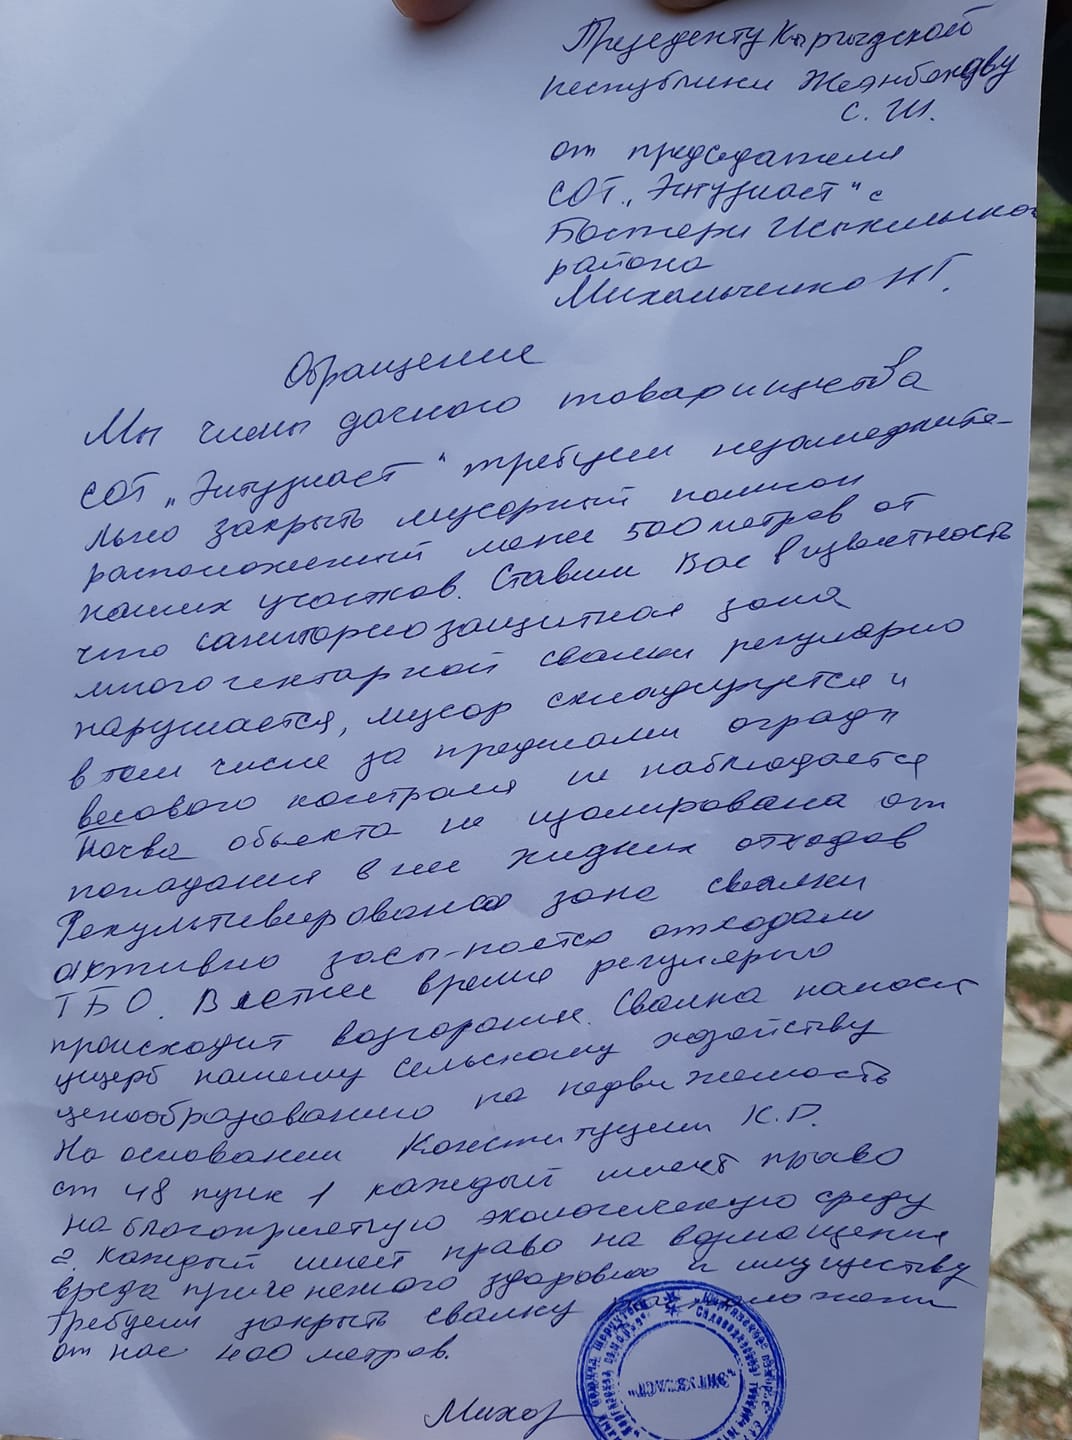 Президенту Кыргызской
республики Жеэнбекову
С. Ш.
от председателя
СОТ „Энтузиаст" с
Бостери Иссыкульского
района
Михальченко Н Г.
Обращение
Мы члены дачного товарищества
СОТ „Энтузиаст" требуем незамедлите-
льно закрыть мусорный полигон
расположенный менее 500 метров от
наших участков. Ставим Вас в известность
что санитарно защитная зона
многогектарной свалки регулярно
нарушается, мусор складируется и
в том числе за пределами ограды
весового контроля не наблюдается
Почва объекта не изолирована от
попадания в нее жидких отходов
Рекультивированная зона свалки
активно засы-пается отходами
ТБО. В летнее время регулярно
происходит возгорание. Свалка наносит
ущерб нашему сельскому хозяйству
ценообразованию на недвижемость
На основании Конституции К.Р.
ст 48 пунк 1 каждый имеет право
на благоприятную экологическую среду
2. Каждый имеет право на возмещение
вреда причененного здоровью и имуществу
Требуем закрыть свалку
от нас 400 метров.
Михал
"ЭНТУЗИАСТ"